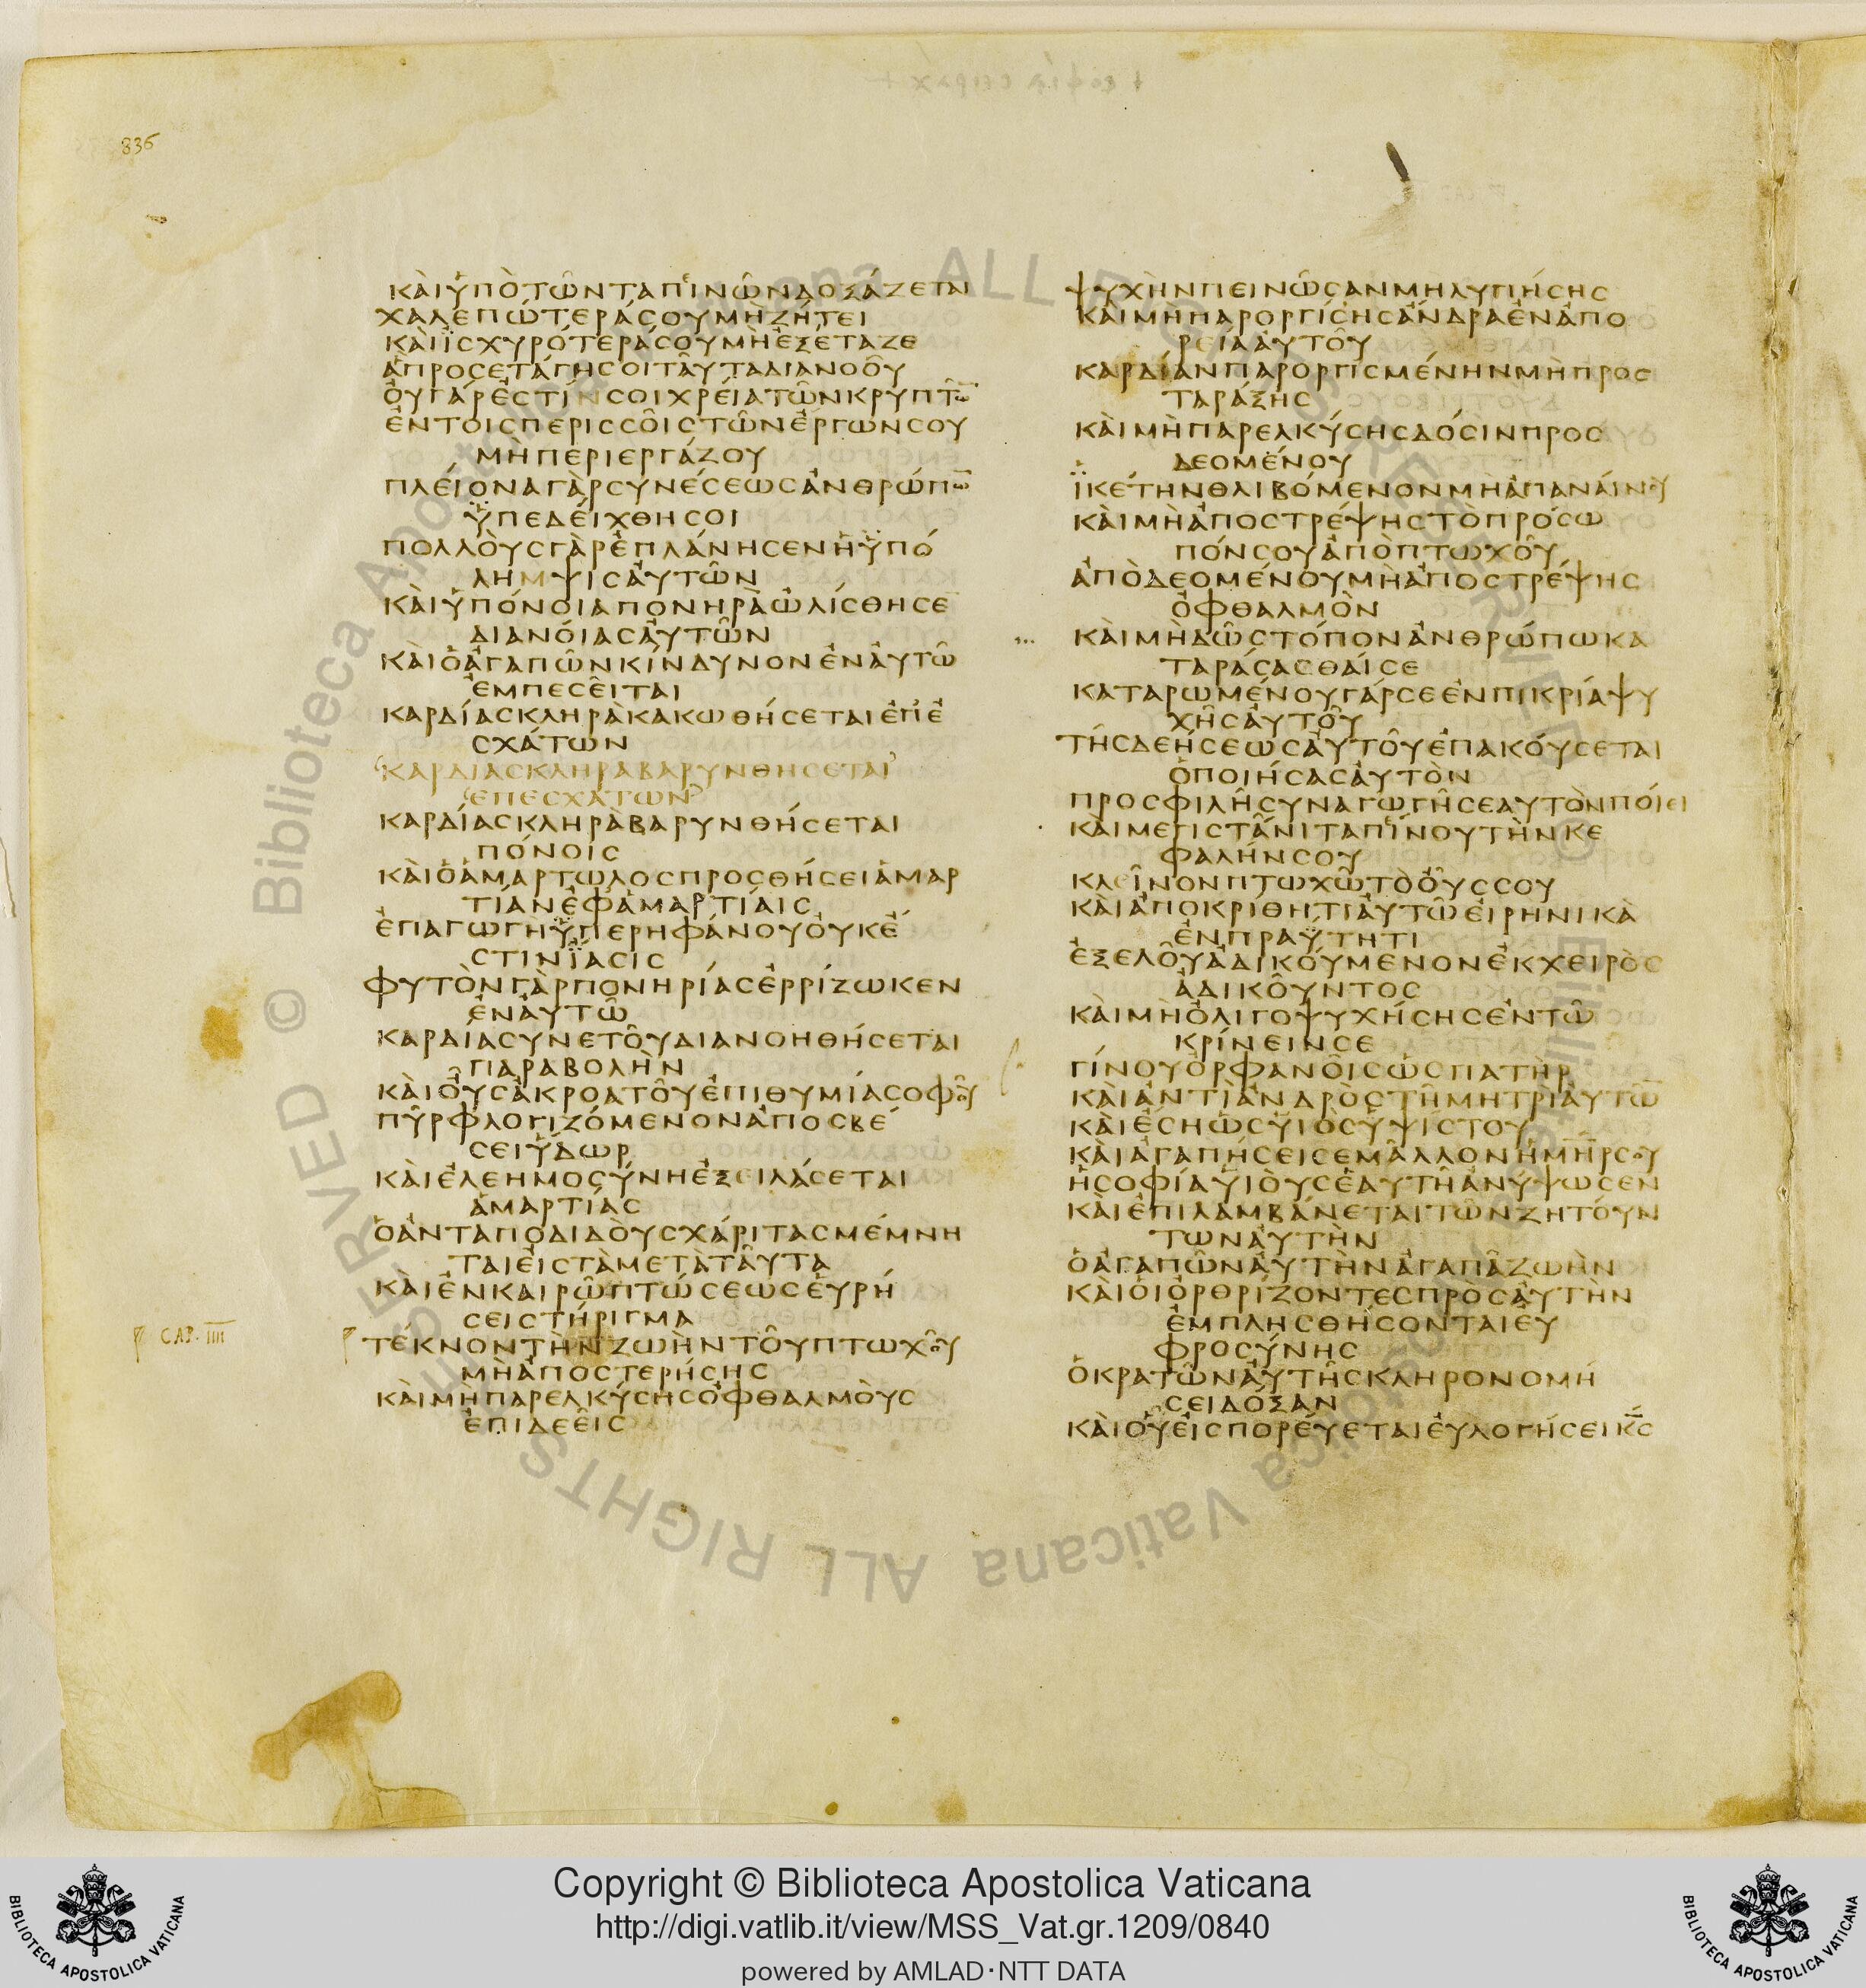 836
ΚΑῚΥ̓ΠῸΤΩ͂ΝΤΑΠΙΝΩ͂ΝΔΟΞΆΖΕΤΑΙ
ΧΑΛΕΠΏΤΕΡΆϹΟΥΜῊΖΉΤΕΙ
ΚΑῚΪϹΧΥΡΌΤΕΡΆϹΟΥΜῊἘΞΈΤΑΖΕ
ἈΠΡΟϹΕΤΆΓΗϹΟΙΤΑΥ͂ΤΑΔΙΑΝΟΟΥ͂
ΟΥ̓ΓΆΡἘϹΤΊΝϹΟΙΧΡΕΊΑΤΩ͂ΝΚΡΥΠΤΩ̅
ἘΝΤΟΙϹΠΕΡΙϹϹΟΙ͂ϹΤΩ͂ΝἘΡΓΩΝϹΟΥ
ΜῊΠΕΡΙΕΡΓΆΖΟΥ
ΠΛΕΊΟΝΑΓᾺΡϹΥΝΈϹΕΩϹἈΝΘΡΏΠΩ̅
ΫΠΕΔΕΊΧΘΗϹΟΙ
ΠΟΛΛΟῪϹΓᾺΡἘΠΛΆΝΗϹΕΝἩΫΠΌ
ΛΗΜΨΙϹΑΥ̓ΤΩ͂Ν
ΚΑῚὙΠΌΝΟΙΑΠΟΝΗΡᾺὨΛΊϹΘΗϹΕ
ΔΙΑΝΟΊΑϹΑΥ̓ΤΩ͂Ν
ΚΑῚὉἈΓΑΠΩ͂ΝΚΊΝΔΥΝΟΝἘΝΑΥ̓ΤΩ͂
ἘΜΠΕϹΕΙ͂ΤΑΙ
ΚΑΡΔΊΑϹΚΛΗΡᾺΚΑΚΩΘΉϹΕΤΑΙἘΠἘ
ϹΧΆΤΩΝ
ΚΑΡΔΙΑϹΚΛΗΡΑΒΑΡΥΝΘΗϹΕΤΑΙ
ΕΠΕϹΧΑΤΩΝ
ΚΑΡΔΊΑϹΚΛΗΡᾺΒΑΡΥΝΘΉϹΕΤΑΙ
ΠΌΝΟΙϹ
ΚΑῚὉἉΜΑΡΤΩΛΟϹΠΡΟϹΘΉϹΕΙἉΜΑΡ
ΤΊΑΝἘΦἉΜΑΡΤΊΑΙϹ
ἘΠΑΓΩΓΗΫΠΕΡΗΦΆΝΟΥΟΥ̓ΚἜ
ϹΤΙΝΪΑϹΙϹ
ΦΥΤῸΝΓᾺΡΠΟΝΗΡΊΑϹἘΡΡΊΖΩΚΕΝ
ἘΝΑΥ̓ΤΩ͂
ΚΑΡΔΊΑϹΥΝΕΤΟΥ͂ΔΙΑΝΟΗΘΉϹΕΤΑΙ
ΠΑΡΑΒΟΛῊΝ
ΚΑῚΟΥ͂ϹἈΚΡΟΑΤΟΥ͂ἘΠΙΘΥΜΊΑϹΟΦΟΥ͂
ΠΥ͂ΡΦΛΟΓΙΖΌΜΕΝΟΝἈΠΟϹΒΈ
ϹΕΙὝΔΩΡ
ΚΑῚἘΛΕΗΜΟϹΎΝΗἘΞΕΙΛΆϹΕΤΑΙ
ἉΜΑΡΤΊΑϹ
ὉἈΝΤΑΠΟΔΙΔΟῪϹΧΆΡΙΤΑϹΜΈΜΝΗ
ΤΑΙΕἸϹΤᾺΜΕΤᾺΤΑΥ͂ΤΑ
ΚΑῚἘΝΚΑΙΡΩ͂ΠΤΏϹΕΩϹΕὙΡΉ
ϹΕΙϹΤΉΡΙΓΜΑ
CAP. IIII
ΤΈΚΝΟΝΤῊΝΖΩῊΝΤΟΥ͂ΠΤΩΧΟΥ͂
ΜῊἈΠΟϹΤΕΡΉϹΗϹ
ΚΑῚΜῊΠΑΡΕΛΚΎϹΗϹὈΦΘΑΛΜΟῪϹ
ἘΠΙΔΕΕΙ͂Ϲ
ΨΥΧῊΝΠΕΙΝΩ͂ϹΑΝΜΗΛΥΠΉϹΗϹ
ΚΑΙΜῊΠΑΡΟΡΓΊϹΗϹἌΝΔΡΑἘΝἈΠΟ
ΡΕΙΑΑΥ̓ΤΟΥ͂
ΚΑΡΔΊΑΝΠΑΡΟΡΓΙϹΜΈΝΗΝΜῊΠΡΟϹ
ΤΑΡΆΞΗϹ
ΚΑῚΜῊΠΑΡΕΛΚΎϹΗϹΔΌϹΙΝΠΡΟϹ
ΔΕΟΜΈΝΟΥ
ΪΚΈΤΗΝΘΛΙΒΌΜΕΝΟΝΜῊἈΠΑΝΑΊΝΟΥ
ΚΑῚΜῊἈΠΟϹΤΡΈΨΗϹΤῸΠΡΌϹΩ
ΠΌΝϹΟΥἈΠῸΠΤΩΧΟΥ͂
ἈΠῸΔΕΟΜΈΝΟΥΜῊἈΠΟϹΤΡΈΨΗϹ
ὈΦΘΑΛΜῸΝ
ΚΑῚΜῊΔΩ͂ϹΤΌΠΟΝἈΝΘΡΏΠΩΚΑ
ΤΑΡΆϹΑϹΘΑΊϹΕ
ΚΑΤΑΡΩΜΈΝΟΥΓΆΡϹΕἘΝΠΙΚΡΊΑΨΥ
ΧΗ͂ϹΑΥ̓ΤΟΥ͂
ΤΗ͂ϹΔΕΉϹΕΩϹΑΥ̓ΤΟΥ͂ἘΠΑΚΟΎϹΕΤΑΙ
ὉΠΟΙΉϹΑϹΑΥ̓ΤῸΝ
ΠΡΟϹΦΙΛΗ͂ϹΥΝΑΓΩΓΗ͂ϹΕΑΥΤῸΝΠΟΊΕΙ
ΚΑῚΜΕΓΙϹΤΑ͂ΝΙΤΑΠΊΝΟΥΤῊΝΚΕ
ΦΑΛΉΝϹΟΥ
ΚΛΕΙ͂ΝΟΝΠΤΩΧΩ͂ΤῸΟΥ͂ϹϹΟΥ
ΚΑῚἈΠΟΚΡΊΘΗΤΙΑΥ̓ΤΩ͂ΕἸΡΗΝΙΚᾺ
ἘΝΠΡΑΫΤΗΤΙ
ἘΞΕΛΟΥ͂ἈΔΙΚΟΎΜΕΝΟΝἘΚΧΕΙΡῸϹ
ἈΔΙΚΟΥ͂ΝΤΟϹ
ΚΑῚΜῊὈΛΙΓΟΨΥΧΉϹΗϹἘΝΤΩ͂
ΚΡΊΝΕΙΝϹΕ
ΓΊΝΟΥὈΡΦΑΝΟΙ͂ϹὩϹΠΑΤῊΡ
ΚΑῚἈΝΤῚἈΝΔΡῸϹΤΗ͂ΜΗΤΡῚΑΥ̓ΤΩ̅
ΚΑῚἜϹΗὩϹΥἹῸϹὙΨΊϹΤΟΥ
ΚΑῚἈΓΑΠΉϹΕΙϹΕΜΑ͂ΛΛΟΝἪΜ̅Η̅Ρ̅ϹΟΥ
ἩϹΟΦΊΑΥἹΟῪϹἙΑΥΤΗ͂ἈΝΎΨΩϹΕΝ
ΚΑῚἘΠΙΛΑΜΒΆΝΕΤΑΙΤΩ͂ΝΖΗΤΟΎΝ
ΤΩΝΑΥ̓ΤῊΝ
ὉἈΓΑΠΩ͂ΝΑΥ̓ΤῊΝἈΓΑΠΑ͂ΖΩῊΝ
ΚΑῚΟἹὈΡΘΡΊΖΟΝΤΕϹΠΡῸϹΑΥ̓ΤῊΝ
ἘΜΠΛΗϹΘΉϹΟΝΤΑΙΕΥ̓
ΦΡΟϹΎΝΗϹ
ὉΚΡΑΤΩ͂ΝΑΥ̓ΤΗ͂ϹΚΛΗΡΟΝΟΜΉ
ϹΕΙΔΌΞΑΝ
ΚΑῚΟὙΕἸϹΠΟΡΕΎΕΤΑΙΕΥ̓ΛΟΓΉϹΕΙΚ̅Ϲ̅
© Biblioteca Apostolica Vaticana ALL RIGHTS RESERVED
© Biblioteca Apostolica Vaticana ALL RIGHTS RESERVED
Copyright © Biblioteca Apostolica Vaticana
http://digi.vatlib.it/view/MSS_Vat.gr.1209/0840
powered by AMLAD·NTT DATA
BIBLIOTECA APOSTOLICA VATICANA
BIBLIOTECA APOSTOLICA VATICANA